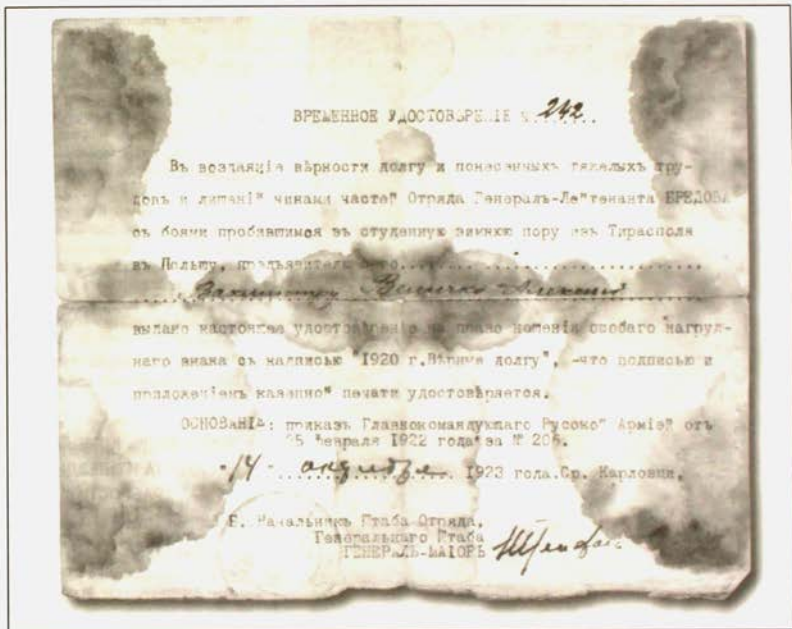 ВРЕМЕННОЕ УДОСТОВѢРЕНІЕ № 242
Въ воздаяніе вѣрности долгу и понесенныхъ тяжелыхъ тру-
довъ и лишені" чинами часте" Отряда Генералъ-Ле"тенанта БРЕДОВА
съ боями пробившимся въ студенную зимнюю пору изъ Тирасполя
въ Польшу, предъявителю сего
Вахмистру Величко Алексей
выдано настоящее удостовѣреніе на право ношенія особаго нагруд-
наго знака съ надписью "1920 г. Вѣрные долгу", -что подписью и
приложеніемъ казенно" печати удостовѣряется.
ОСНОВАНІЕ: приказъ Главнокомандующаго Русско" Арміе" отъ
25 Февраля 1922 года за № 206.
"14" октября 1923 года. Ср. Карловци.
Начальникъ Штаба Отряда,
Генеральнаго Штаба
ГЕНЕРАЛЪ-МАІОРЪ